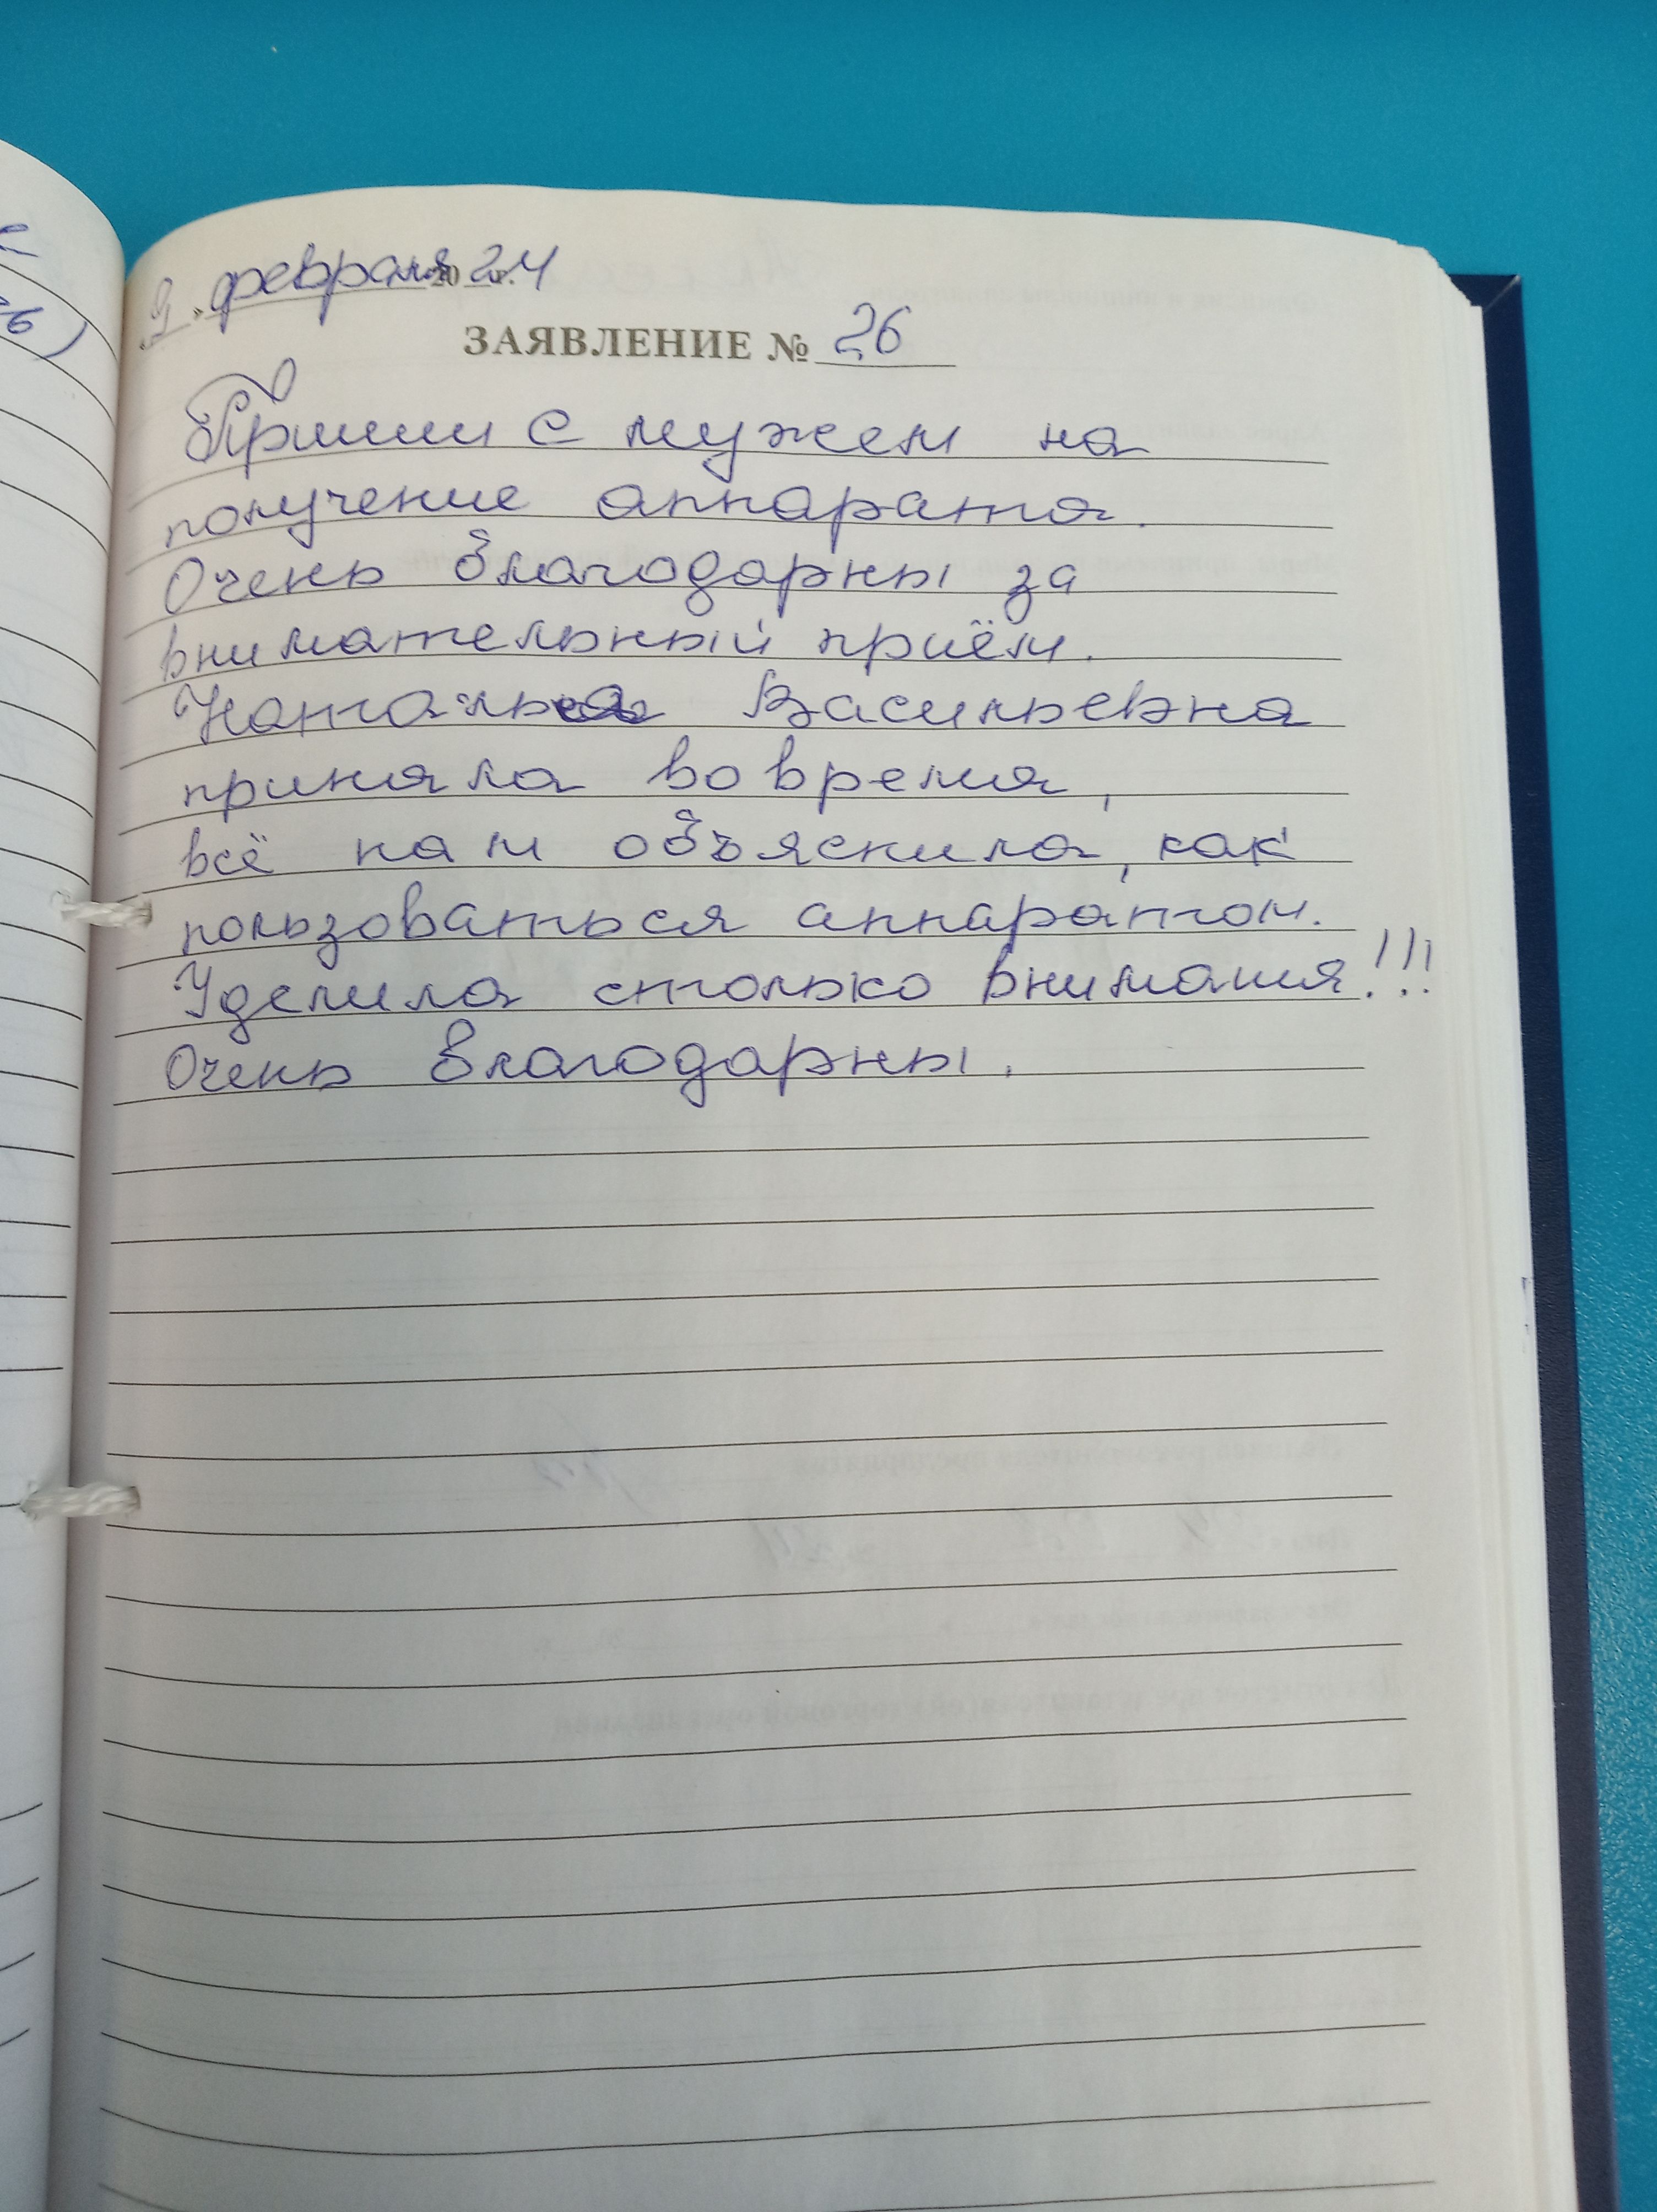 9 » февраля 2024 г.
ЗАЯВЛЕНИЕ № 26
Пришли с мужем на
получение аппарата.
Очень благодарны за
внимательный приём.
Наталья Васильевна
приняла вовремя,
всё нам объяснила, как
пользоваться аппаратом.
Уделила столько внимания!!!
Очень благодарны.